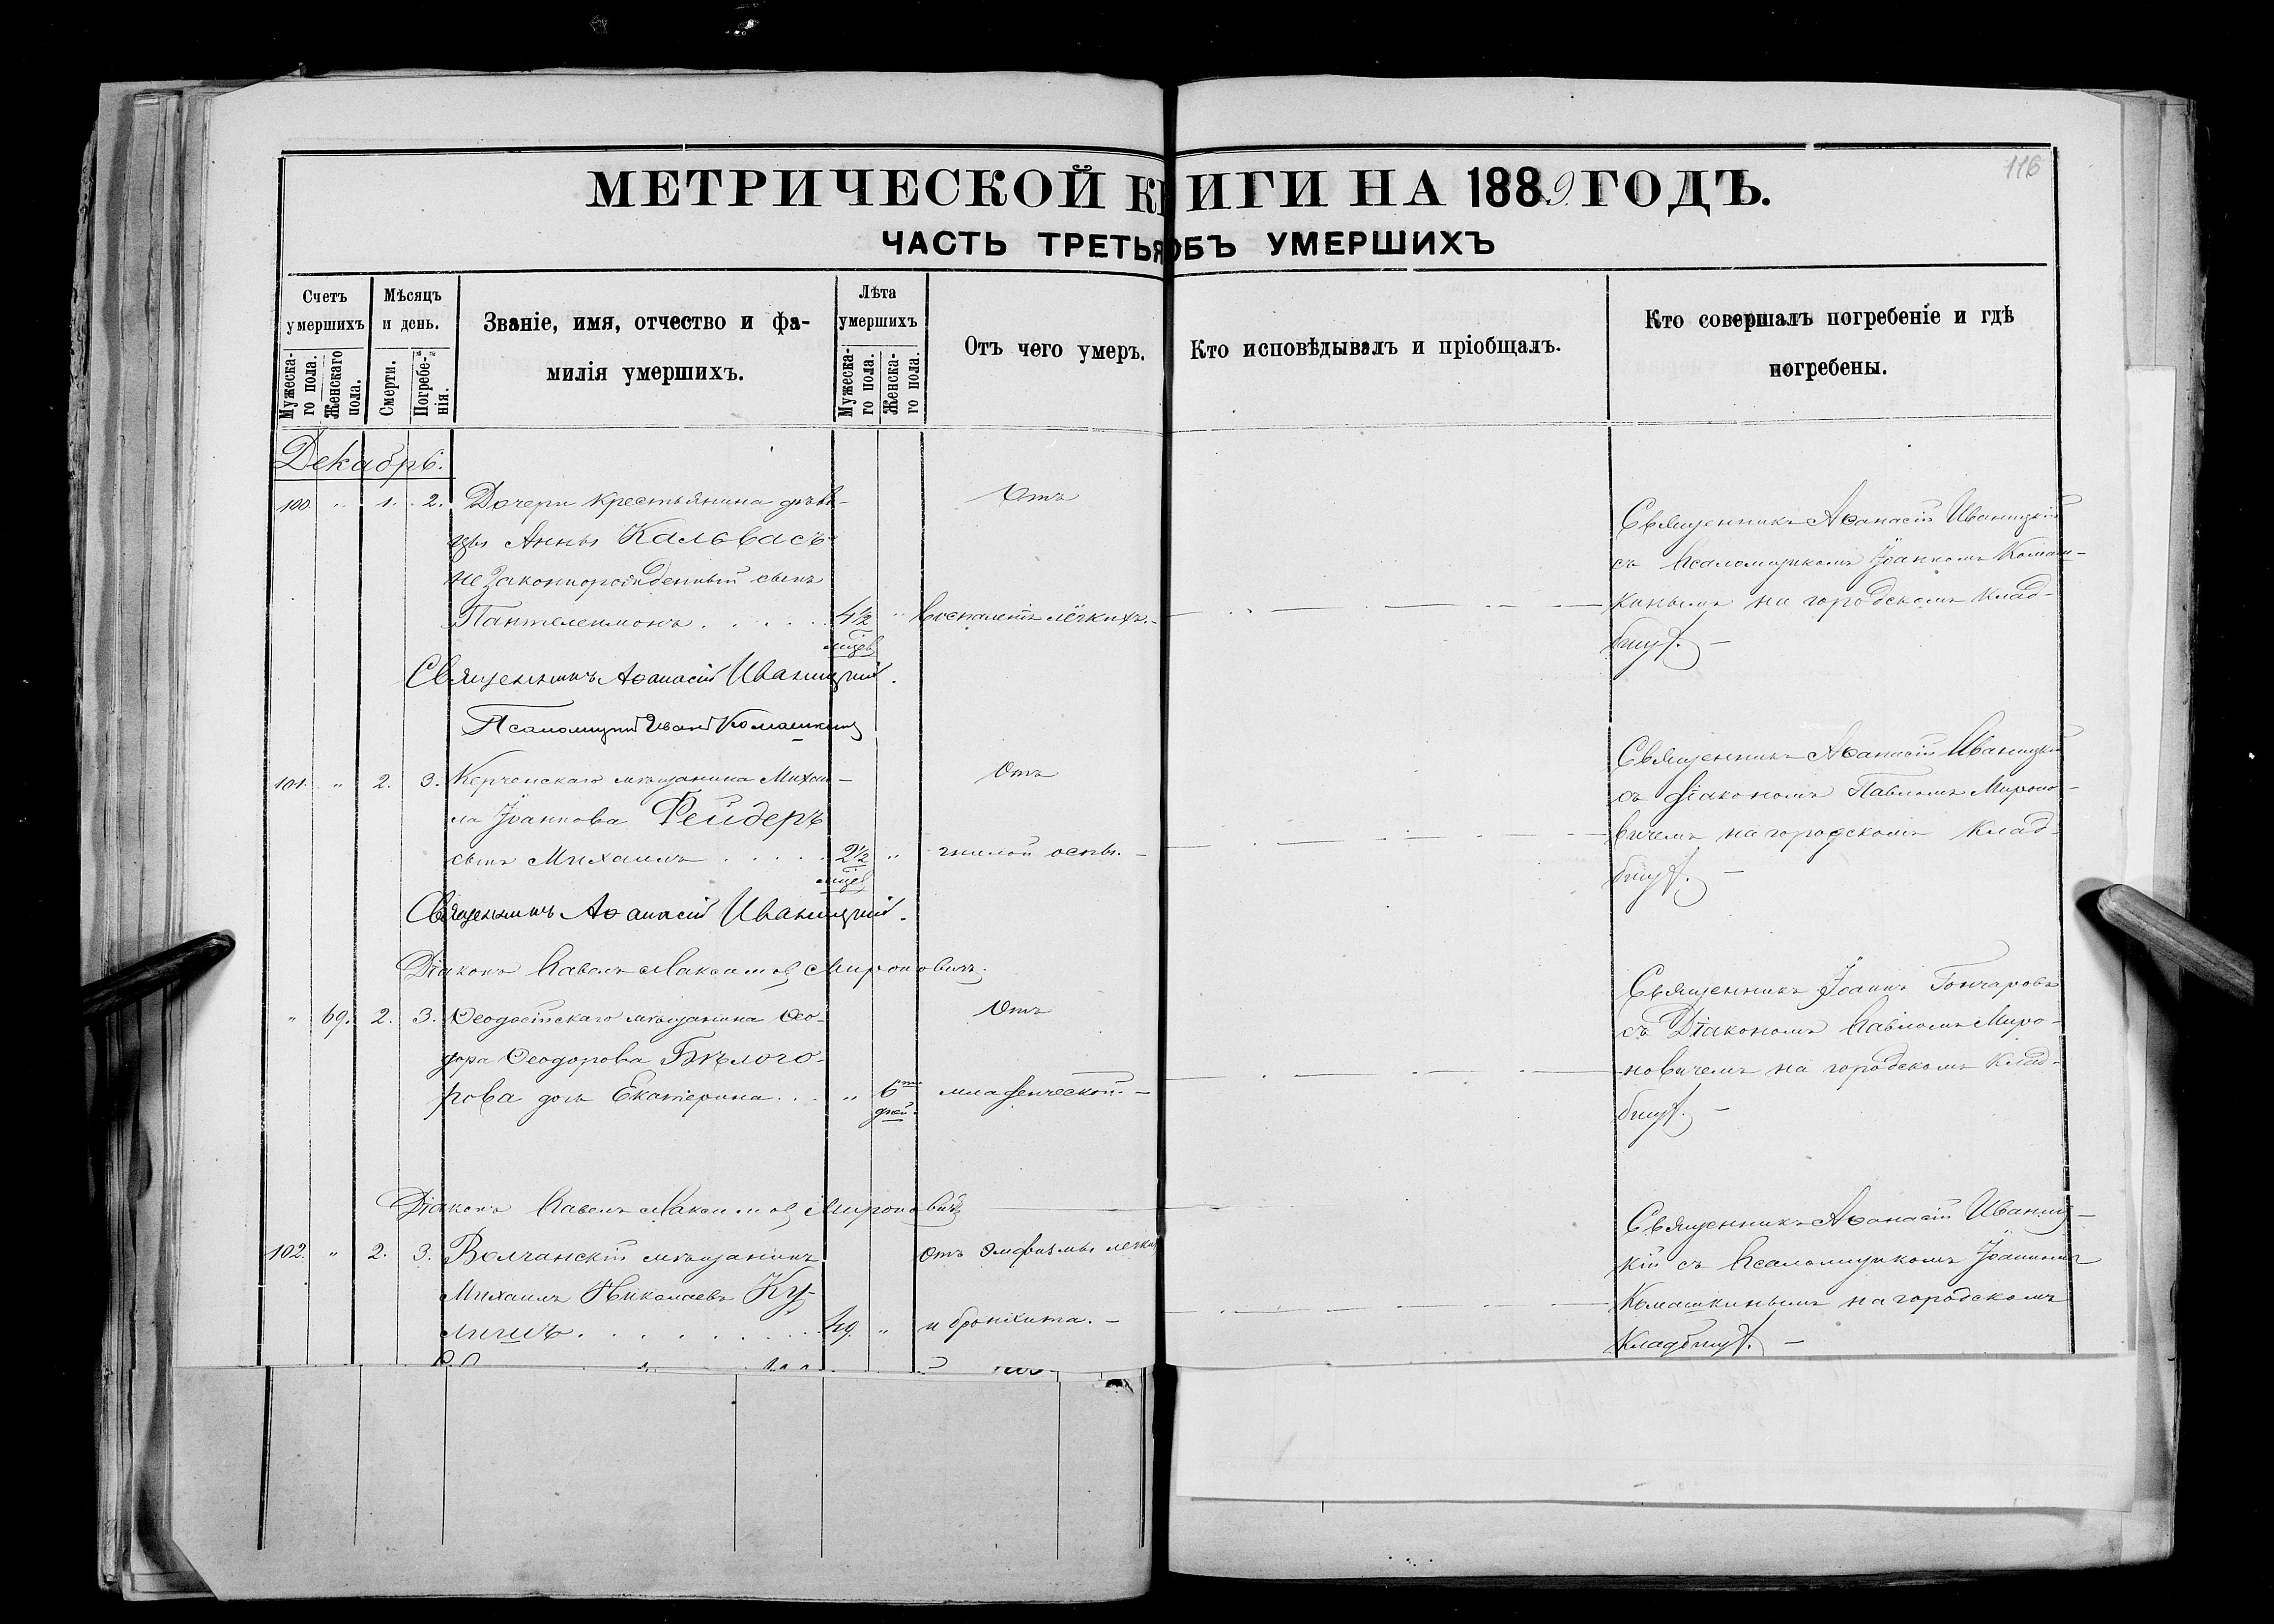 116
МЕТРИЧЕСКОЙ КНИГИ НА 1889 ГОДЪ.
ЧАСТЬ ТРЕТЬЯ ОБЪ УМЕРШИХЪ
Счетъ умершихъ
Мужескаго пола.
Женскаго пола.
Мѣсяцъ и день.
Смерти.
Погребенія.
Званіе, имя, отчество и фамилія умершихъ.
Лѣта умершихъ
Мужескаго пола.
Женскаго пола.
Отъ чего умеръ.
Кто исповѣдывалъ и пріобщалъ.
Кто совершалъ погребеніе и гдѣ погребены.
Декабрь.
100. " 1. 2. Дочери крестьянина дѣви-
цы Анны Кальвасъ
незаконнорожденный сынъ
Пантелеимонъ . . . . . 4½ "
мѣсцев
Отъ
воспаленія лёгкихъ. —
Священникъ Аѳанасій Иваницкій
съ Псаломщикомъ Іоанномъ Комаш-
кинымъ на городскомъ клад-
бищѣ. —
Священникъ Аѳанасій Иваницкій.
Псаломщикъ Иванъ Комашкинъ
101. " 2. 3. Керченскаго мѣщанина Михаи-
ла Іоаннова Фейдеръ
сынъ Михаилъ . . . . . 2½ "
мѣсцев
Отъ
гнилой оспы. —
Священникъ Аѳанасій Иваницкій
съ Діакономъ Павломъ Мироно-
вичемъ на городскомъ клад-
бищѣ. —
Священникъ Аѳанасій Иваницкій.
Діаконъ Павелъ Максимов Мироновичъ.
" 69. 2. 3. Ѳеодосійскаго мѣщанина Ѳео-
дора Ѳеодорова Бѣлого-
рова дочь Екатерина . . . " 6
дней.
Отъ
младенческой. —
Священникъ Іоаннъ Гончаровъ
съ Діакономъ Павломъ Миро-
новичемъ на городскомъ клад-
бищѣ. —
Діаконъ Павелъ Максимов Мироновичъ
102. " 2. 3. Волчанскій мѣщанинъ
Михаилъ Николаевъ Ку-
личъ . . . . . . . . . 49. "
отъ эмфиземы легких
и бронхита. —
Священникъ Аѳанасій Иваниц-
кій съ Псаломщикомъ Іоанномъ
Комашкинымъ на городскомъ
кладбищѣ. —